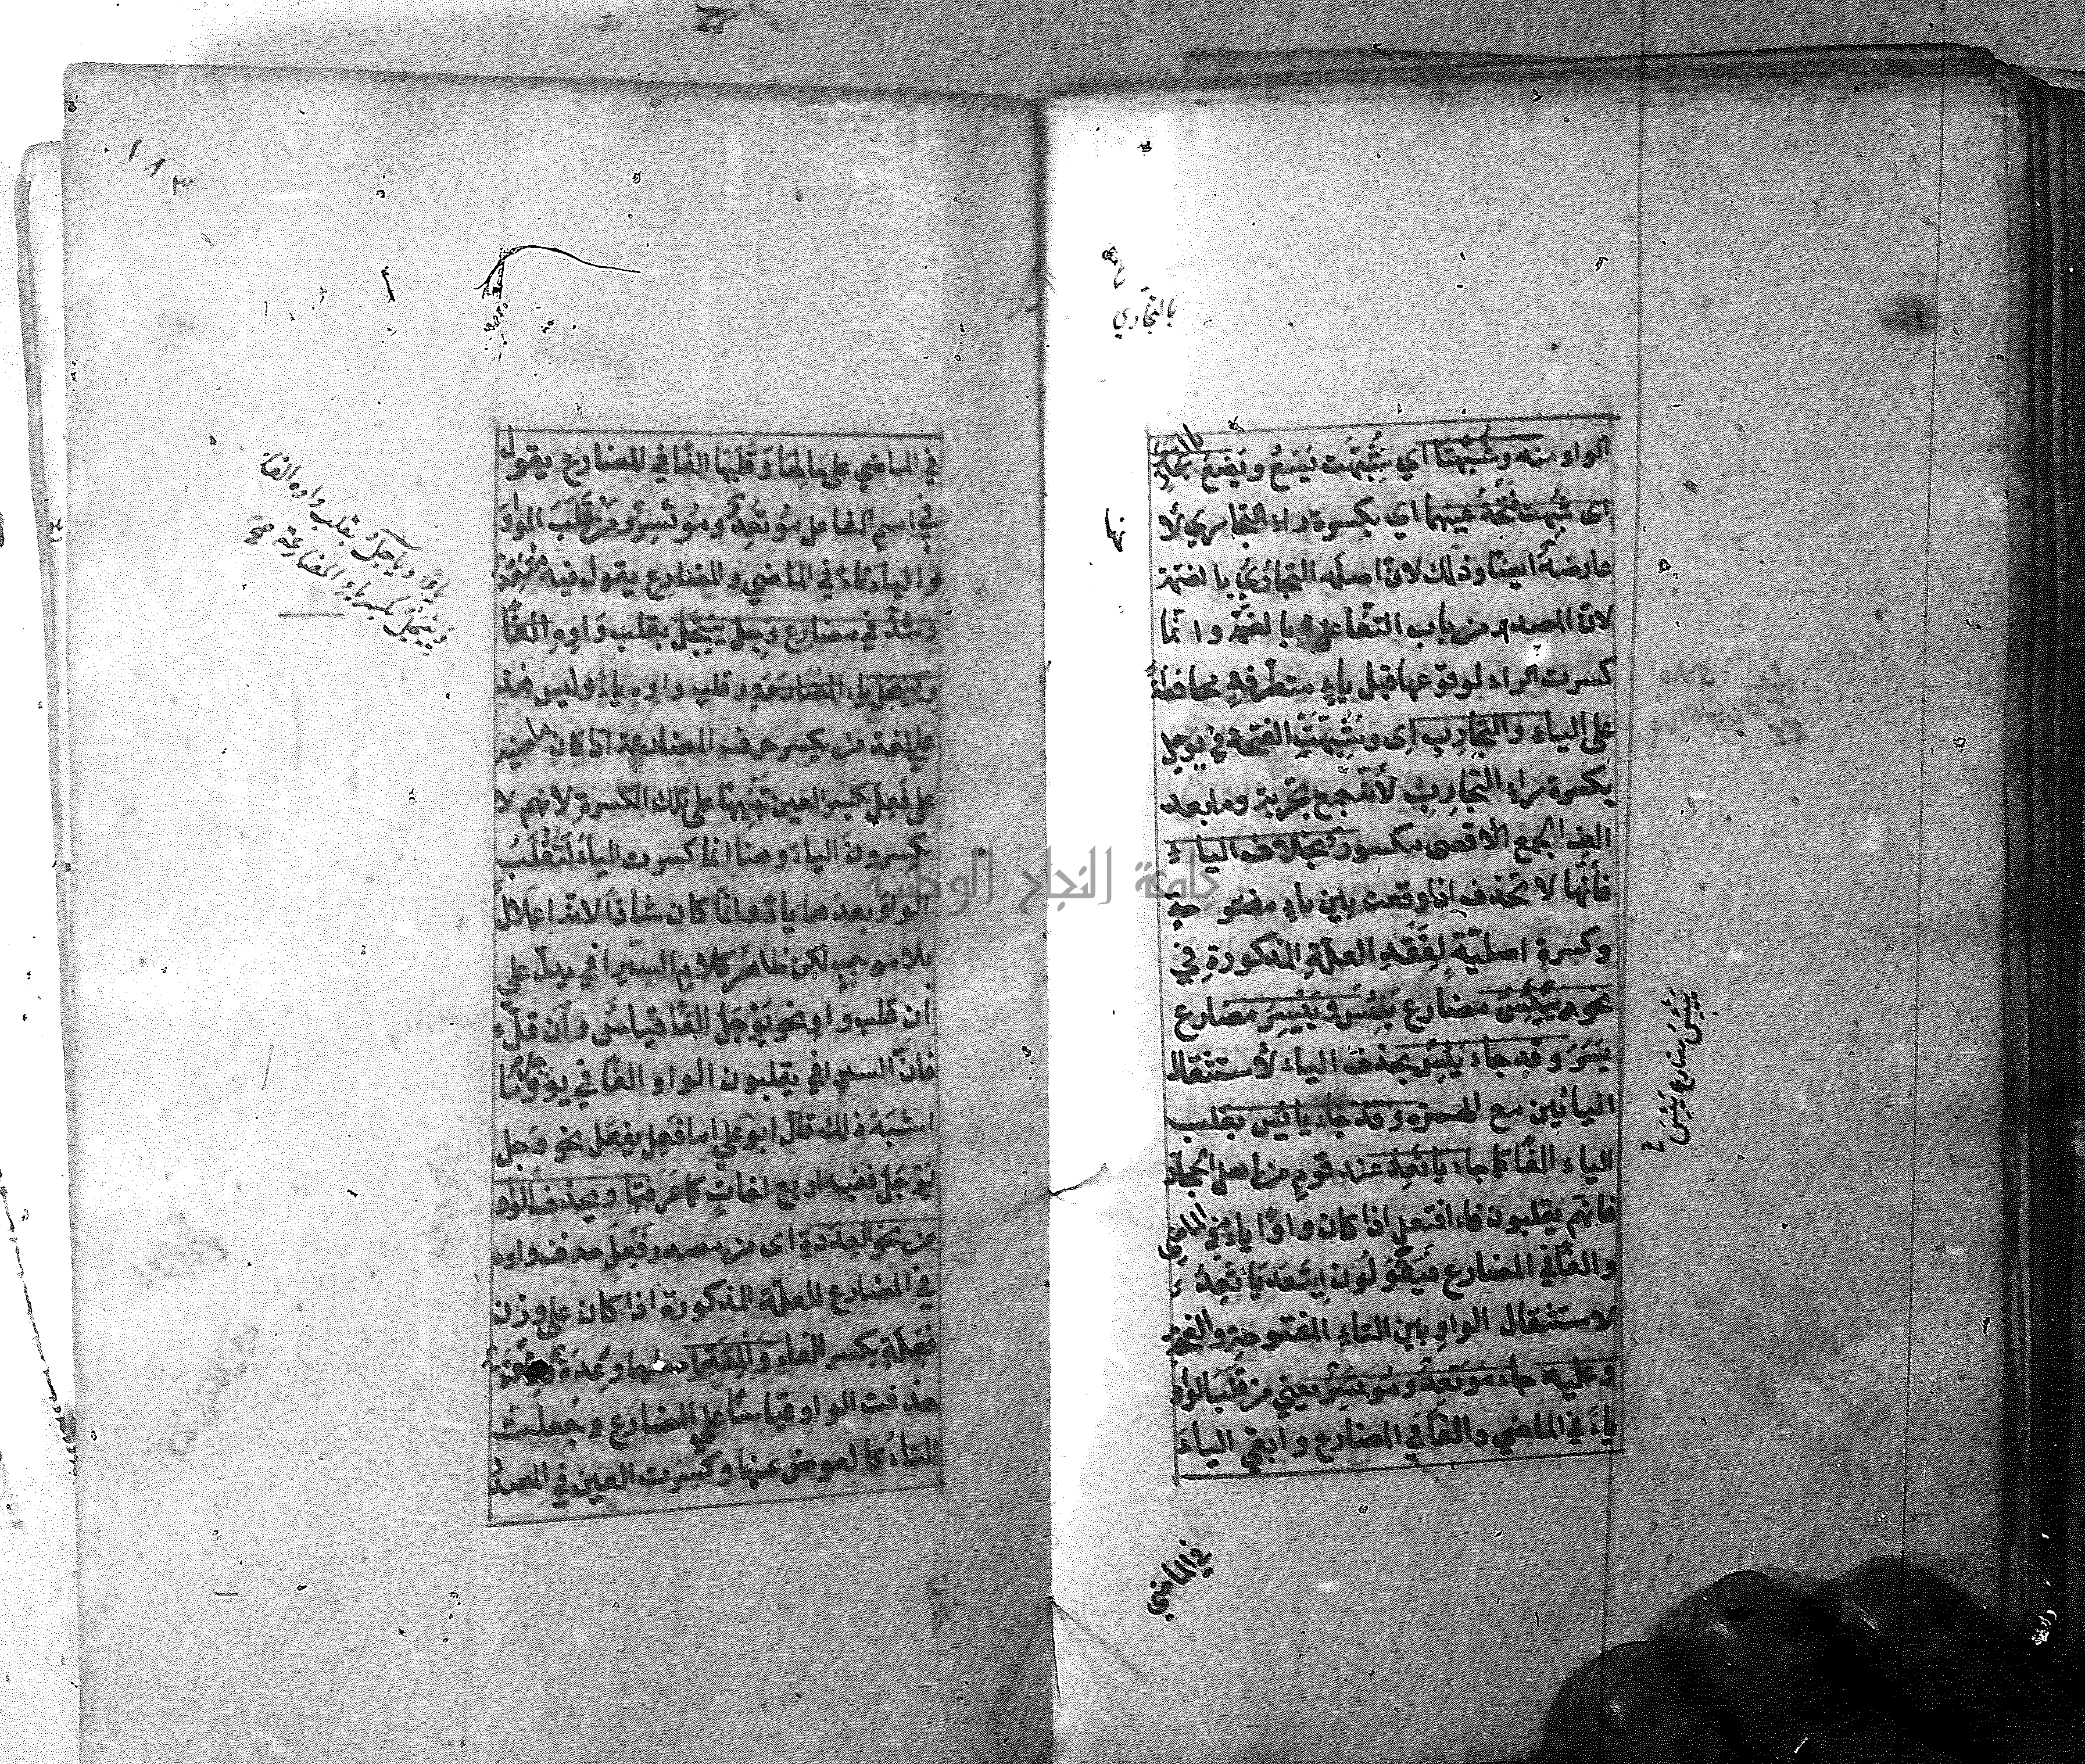 بالتجاري
الواو منه وشبهتا اي شبهت يسع ويضع
اى شبهت فتحة عينهما اي بكسرة راء التجاري لا
نها
عارضة ايضا وذلك لان اصله التجاري بالضمة
لان المصدر من باب التفاعل بالضمة وانما
كسرت الراء لوقوعها قبل ياء متطرفة محافظة
على الياء والتجارب اى وشبهت الفتحة في يوجل
بكسرة راء التجارب لانه جمع تجربة وما بعد
الف الجمع الاقصى مكسور بخلاف الياء
فانها لا تحذف اذا وقعت بين ياء مفتوحة
وكسرة اصلية لفقد العلة المذكورة في
نحو ييئس مضارع يئس وييسر مضارع
يسر وقد جاء يئس بحذف الياء لاستثقال
اليائين مع الهمزة وقد جاء يائس بقلب
الياء الفا كما جاء ياتعد عند قوم من اهل الحجاز
فانهم يقلبون فاء افتعل اذا كان واوا ياء في الماضي
والفا في المضارع فيقولون ايتعد ياتعد
لاستثقال الواو بين التاء المفتوحة والفتحة
وعليه جاء موتعد وموتسر يعني من قلب الواو
ياء في الماضي والفا في المضارع وابقى الياء
في الماضي
ييئس مضارع يئس
١٨٣
في الماضي على حالها وقلبها الفا في المضارع يقول
في اسم الفاعل موتعد وموتسر ومن قلب الواو
والياء تاء في الماضي والمضارع يقول فيه متعد
وشذ في مضارع وجل ييجل بقلب واوه الفا
وييجل ياء المضارعة وقلب واوه ياء وليس هذا
على لغة من يكسر حرف المضارعة اذا كان ماضيه
على فعل بكسر العين تنبيها على تلك الكسرة لانهم لا
يكسرون الياء وهنا انما كسرت الياء لتقلب
الواو بعدها ياء وانما كان شاذا لانه اعلال
بلا موجب لكن ظاهر كلام السيرافي يدل على
ان قلب واو نحو يوجل الفا قياس وان قل
فان السيرافي يقلبون الواو الفا في يوجل وما
اشبه ذلك قال ابو علي اما فعل يفعل نحو وجل
يوجل ففيه اربع لغات كما عرفتها ويحذف الواو
من نحو العدة اى من مصدر فعل حذف واوه
في المضارع للعلة المذكورة اذا كان على وزن
فعلة بكسر الفاء
حذفت الواو قياسا على المضارع وجعلت
التاء كالعوض عنها وكسرت العين في المصدر
ياؤا وياجل بقلب واوه الفا
وييجل بكسر ياء المضارعة صح
جامعة النجاح الوطنية